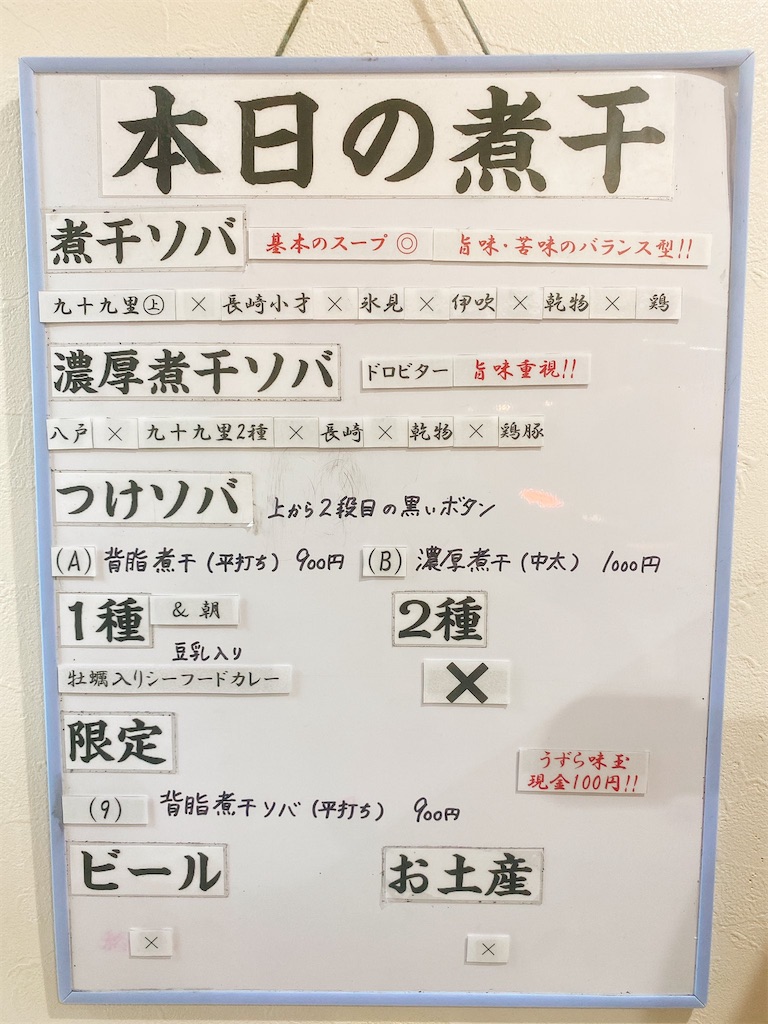 本日の煮干
煮干ソバ 基本のスープ ◎ 旨味・苦味のバランス型!!
九十九里㊤ × 長崎小才 × 氷見 × 伊吹 × 乾物 × 鶏
濃厚煮干ソバ ドロビター 旨味重視!!
八戸 × 九十九里2種 × 長崎 × 乾物 × 鶏豚
つけソバ 上から2段目の黒いボタン
(A) 背脂煮干(平打ち) 900円 (B) 濃厚煮干(中太) 1000円
1種 & 朝 2種
豆乳入り
牡蠣入りシーフードカレー ×
限定
うずら味玉
現金100円!!
(9) 背脂煮干ソバ(平打ち) 900円
ビール お土産
× ×